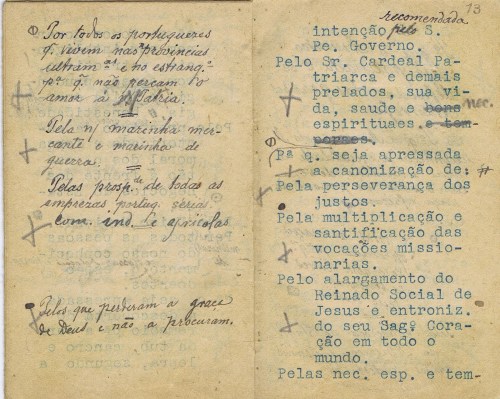 Por todos os portuguezes
q. vivem nas provincias
ultram.as e no estrang.º
pª q. não percam o
amor á Patria.
Pela n/ marinha mer-
cante e marinha de
guerra.
Pelas prosp.des de todas as
emprezas portug. sérias
com. ind. e agricolas
Pelos que perderam a graça
de Deus e não a procuram.
13
recomendada
intenção pelo S.
Pe. Governo.
Pelo Sr. Cardeal Pa-
triarca e demais
prelados, sua vi-
da, saude e bens nec.
espirituaes. e tem-
poraes.
Pª q. seja apressada
a canonização de:
Pela perseverança dos
justos.
Pela multiplicação e
santificação das
vocações missio-
narias.
Pelo alargamento do
Reinado Social de
Jesus e entroniz.
do seu Sagº Cora-
ção em todo o
mundo.
Pelas nec. esp. e tem-